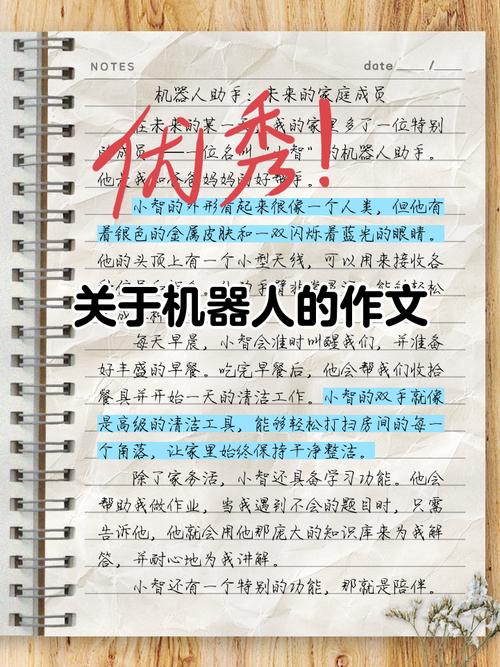 NOTES
date / 
机器人助手：未来的家庭成员
在未来的某一 我的家里多了一位特别
成员 一位名叫“小智”的机器人助手。
他是我和爸爸妈妈的好帮手。
优秀！
小智的外形看起来很像一个人类，但他有
着银色的金属皮肤和一双闪烁着蓝光的眼睛。
他的头顶上有一个小型天线，可以用来接收各
关于机器人的作文
每天早晨，小智会准时叫醒我们，并准备
好丰盛的早餐。吃完早餐后，他会帮我们收拾
餐具并开始一天的清洁工作。小智的双手就像
是高级的清洁工具，能够轻松打扫房间的每一
个角落，让家里始终保持干净整洁。
除了家务活，小智还具备学习功能。他会
帮助我做作业，当我遇到不会的题目时，只需
告诉他，他就会用他那庞大的知识库来为我解
答，并耐心地为我讲解。
小智还有一个特别的功能，那就是陪伴。